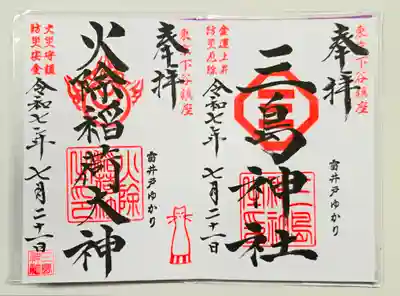 東京下谷鎮座
奉拝
雷井戸ゆかり
三島神社
三島神社
金運上昇
防災厄除
令和七年 七月二十一日
東京下谷鎮座
奉拝
雷井戸ゆかり
火除稲荷大神
火除稲荷
火災守護
防災安全
令和七年 七月二十一日
三島神社